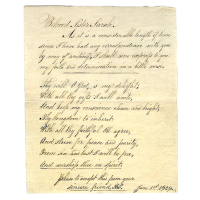 Beloved Sister Sarah,
As it is a considerable length of time
since I have had any correspondence with you
by way of writing, I shall now endeavor to pen
my faith and determination in a little verse.
Thy will O God, is my delight;
With all thy gifts I will unite,
And keep my conscience clean and bright,
Thy kingdom to inherit:
With all thy faithful I'll agree,
And strive for peace and purity,
From sin and lust I will be free,
And worship thee in spirit.
Please to accept this from your
sincere friend,
June